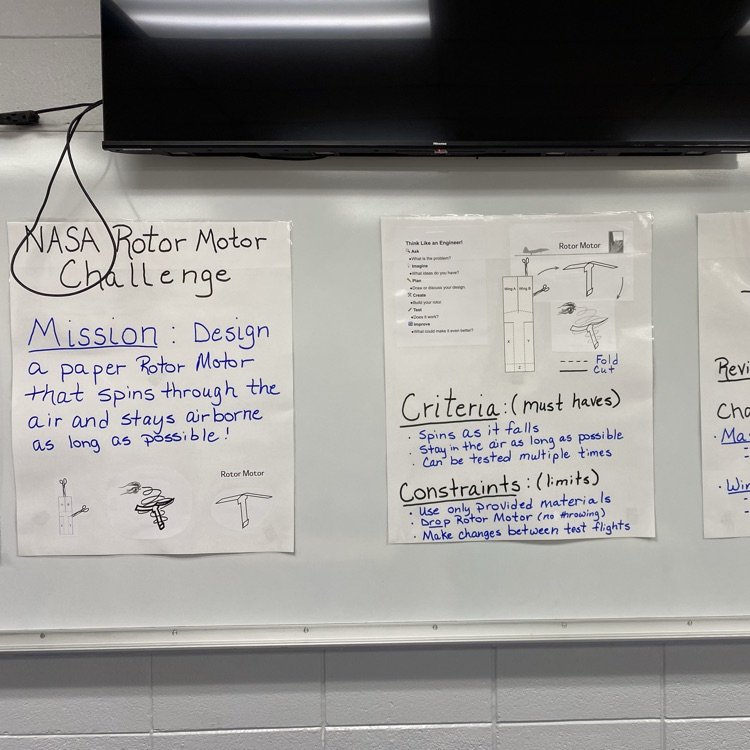 Hisense
NASA Rotor Motor
Challenge
Mission: Design
a paper Rotor Motor
that spins through the
air and stays airborne
as long as possible!
Rotor Motor
Think Like an Engineer!
Ask
•What is the problem?
Imagine
•What ideas do you have?
Plan
•Draw or discuss your design.
Create
•Build your rotor.
Test
•Does it work?
Improve
•What could make it even better?
Rotor Motor
Wing A Wing B
X Y
Z
Fold
Cut
Criteria: (must haves)
• Spins as it falls
• Stay in the air as long as possible
• Can be tested multiple times
Constraints: (limits)
• Use only provided materials
• Drop Rotor Motor (no throwing)
• Make changes between test flights
Revi
Cha
• Ma
• Win